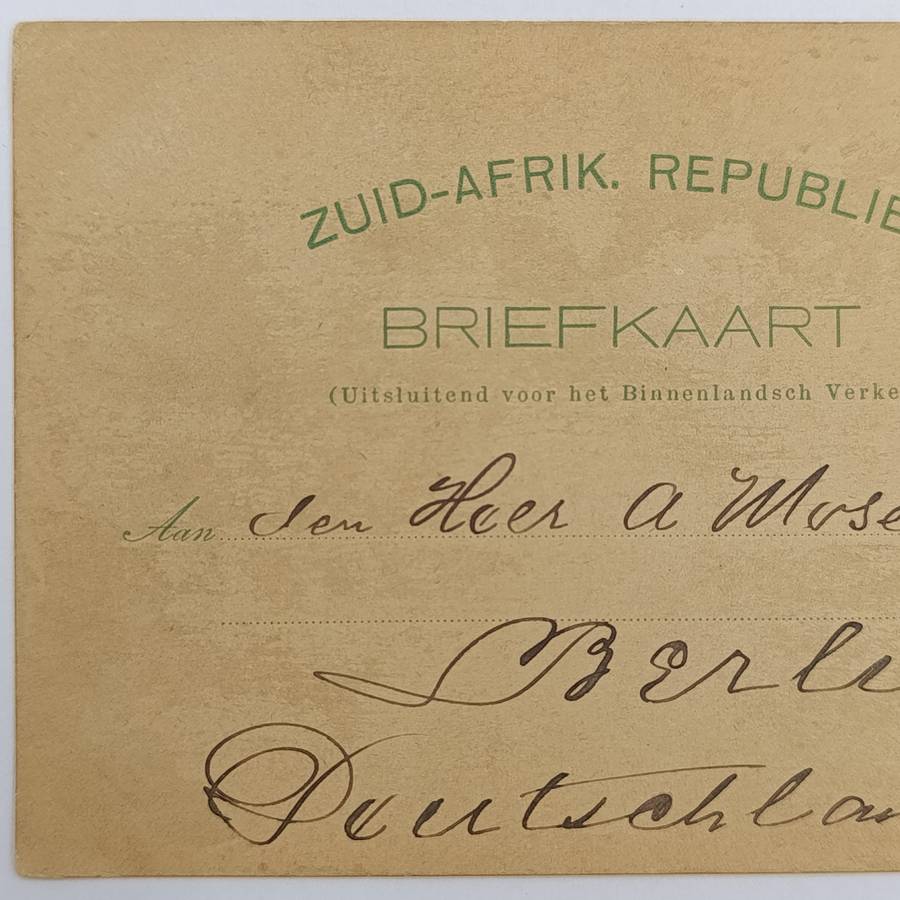 ZUID-AFRIK. REPUBLIE
BRIEFKAART
(Uitsluitend voor het Binnenlandsch Verke
Aan den Heer A Mose
Berli
Deutschlan